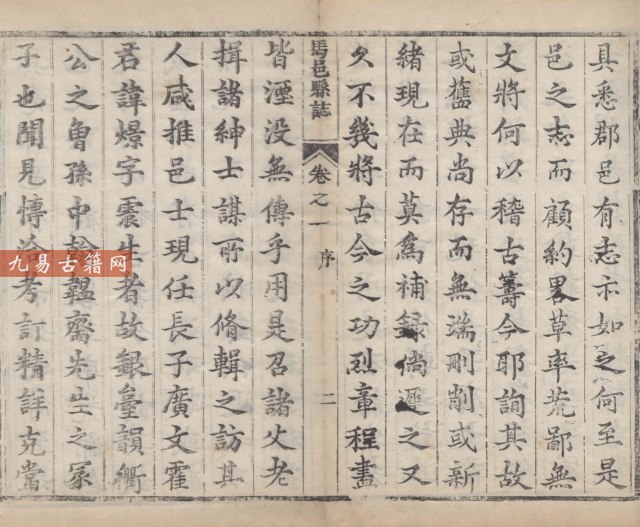 具悉郡邑有志示如之何至是
邑之志而顧約畧草率荒鄙無
文將何以稽古籌今耶詢其故
或舊典尚存而無端刪削或新
緒現在而莫爲補錄倘遲之又
久不幾將古今之功烈章程盡
馬邑縣誌
卷之一 序 二
皆湮没無傳乎用是召諸父老
揖諸紳士謀所以脩輯之訪其
人咸推邑士現任長子廣文霍
君諱燝字震生者故銀臺韻衢
公之曾孫中翰韞齋先生之冢
子也聞見愽洽考訂精詳克當
九易古籍网